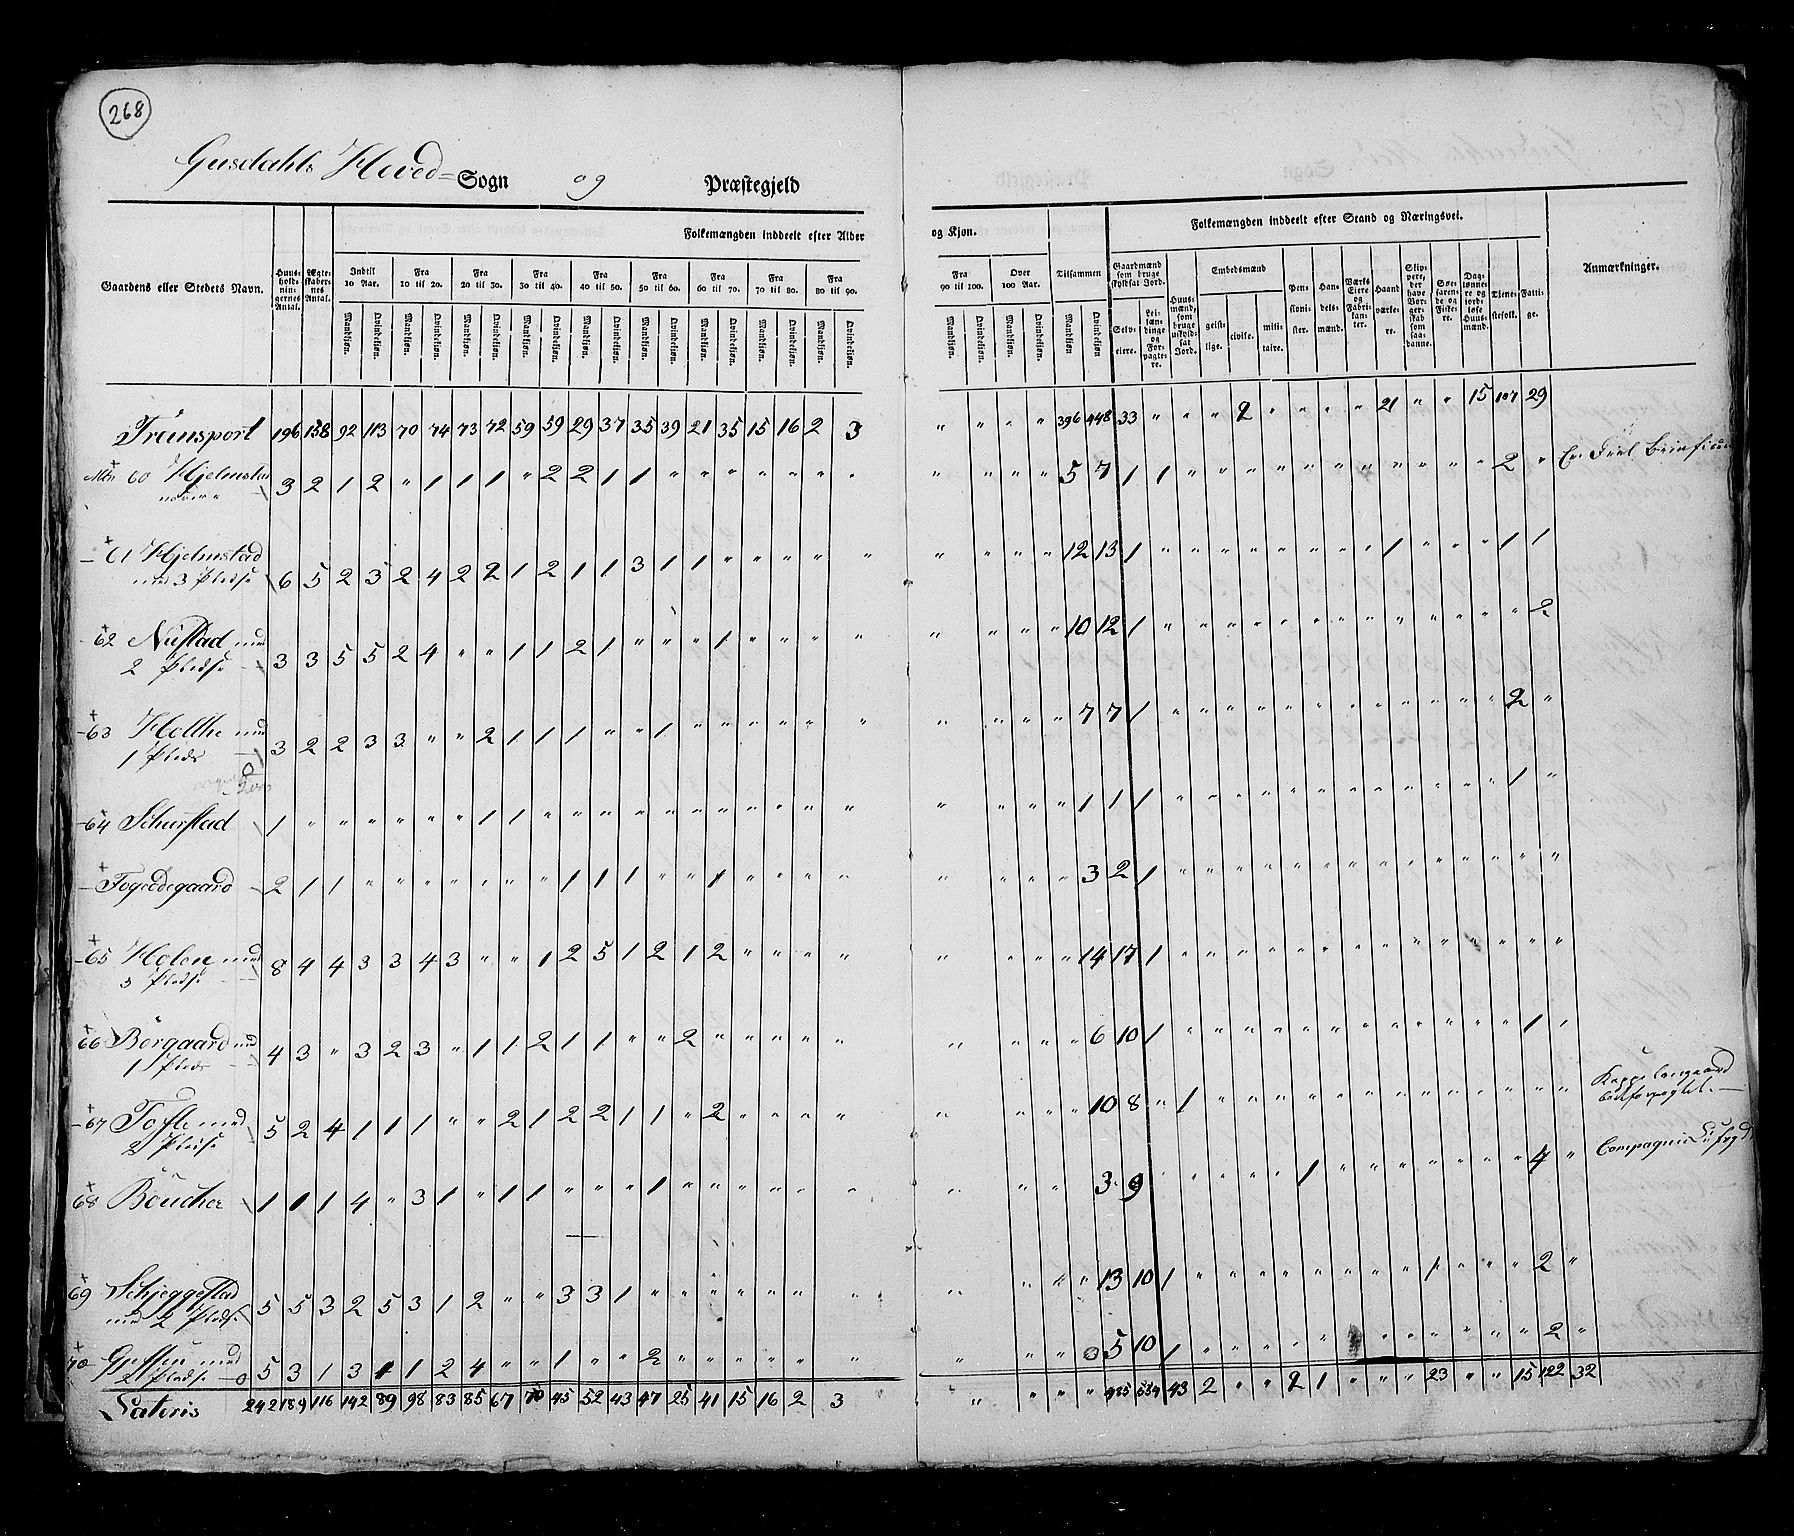 268
Gusdahls Hoved= Sogn og Præstegjeld
Gaardens eller Stedets Navn.
Huusholdningernes Antal.
Ægteskabernes Antal.
Folkemængden inddeelt efter Alder og Kjøn.
Indtil 10 Aar. Fra 10 til 20. Fra 20 til 30. Fra 30 til 40. Fra 40 til 50. Fra 50 til 60. Fra 60 til 70. Fra 70 til 80. Fra 80 til 90. Fra 90 til 100. Over 100 Aar. Tilsammen
Mandkjøn. Qvindekjøn.
Folkemængden inddeelt efter Stand og Næringsvei.
Gaardmænd som bruge skyldsat Jord.
Selveiere. Leilændinge og Forpagtere.
Huusmænd, som bruge uskyldsat Jord.
Embedsmænd
geistlige. civile. militaire.
Pensionister. Handelsmænd. Værkseiere og Fabrikanter. Haandværkere.
Skippere, der have Borgerskab som saadanne.
Søefarende og Fiskere.
Dagslønnere og jordløse Huusmænd.
Tjenestefolk. Fattige.
Anmærkninger.
Transport 196 158 92 113 70 74 73 72 59 59 29 37 35 39 21 35 15 16 2 3 " " " " 396 448 33 " " " 2 " " " " 21 " " 15 107 29
60 Hjelmstad 3 2 1 2 " 1 1 1 " 2 2 1 1 " " " " " " " " " " " 5 7 1 1 " " " " " " " " " " " 2 "
61 Hjelmstad med 3 Pladse 6 5 2 5 2 4 2 2 1 2 1 1 3 1 1 " " " " " " " " " 12 13 1 " " " " " " " " 1 " " " 1 1
62 Nustad med 2 Pladse 3 3 5 5 2 4 " " 1 1 2 1 " " " 1 " " " " " " " " 10 12 1 " " " " " " " " " " " " " 2
63 Holthe med 1 Plads 3 2 2 3 3 " " 2 1 1 1 " " 1 " " " " " " " " " " 7 7 1 " " " " " " " " " " " " 2 "
64 Schurstad 1 " " " " " " 1 1 " " " " " " " " " " " " " " " 1 1 1 " " " " " " " " " " " " 1 "
Fogedegaard 2 1 1 " " " " " " " 1 1 1 " " 1 " " " " " " " " 3 2 1 " " " " " " " " " " " " " "
65 Holen med 3 Pladse 8 4 4 3 3 4 3 " " 1 2 5 1 2 1 2 " " " " " " " " 14 17 1 " " " " " " " " " " " " " "
66 Börgaard med 1 Plads 4 3 " 3 2 3 " 1 1 2 1 1 " " 2 " " " " " " " " " 6 10 1 " " " " " " " " " " " " 1 "
67 Tofte med 2 Pladse 5 2 4 1 1 1 " " 2 1 2 2 1 1 " 2 " " " " " " " " 10 8 " 1 " " " " " " " " " " " " "
68 Böucher 1 1 1 4 " 3 1 " 1 1 " " " 1 " " " " " " " " " 3 9 " " " " 1 " " " " " " " 4 "
Compagnie
69 Schjeggestad med 2 Pladse 5 5 3 2 5 3 1 2 " " 3 3 1 " " " " " " " " " " 13 10 1 " " " " " " " " 1 " " " 2 "
70 med Pladse 5 3 1 3 1 1 2 4 " " 1 " " 2 " " " " " " " " " 5 10 1 " " " " " " " " " " " " 2 "
Lateris 242 189 116 142 89 98 83 85 67 70 45 52 43 47 25 41 15 16 2 3 " " " " 485 554 43 2 " " 2 1 " " " 23 " " 15 122 32